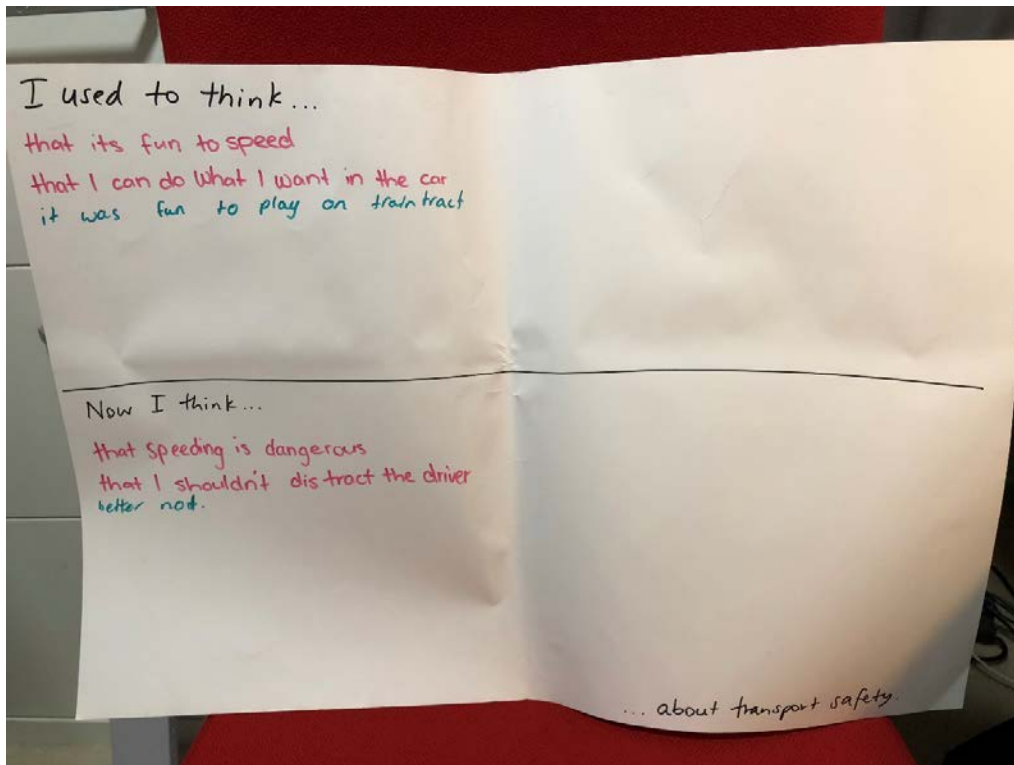 I used to think...
that its fun to speed
that I can do what I want in the car
it was fun to play on train tract
Now I think...
that speeding is dangerous
that I shouldn't distract the driver
better not.
... about transport safety.